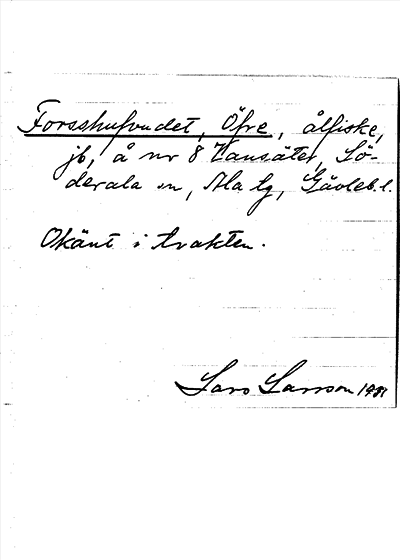 Forsshufvudet, Öfre, ålfiske,
jb, å nr 8 Vansäter, Sö-
derala sn, Ala tg, Gävleb. l.
Okänt i trakten.
Lars Larsson 1981